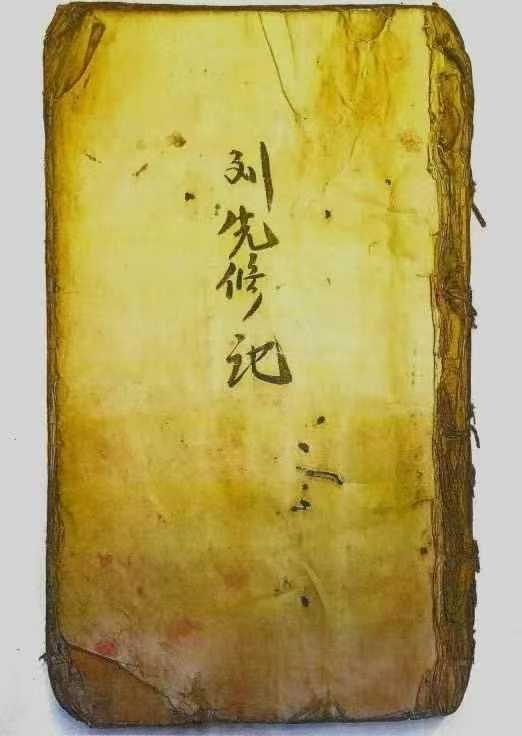 刘先修记